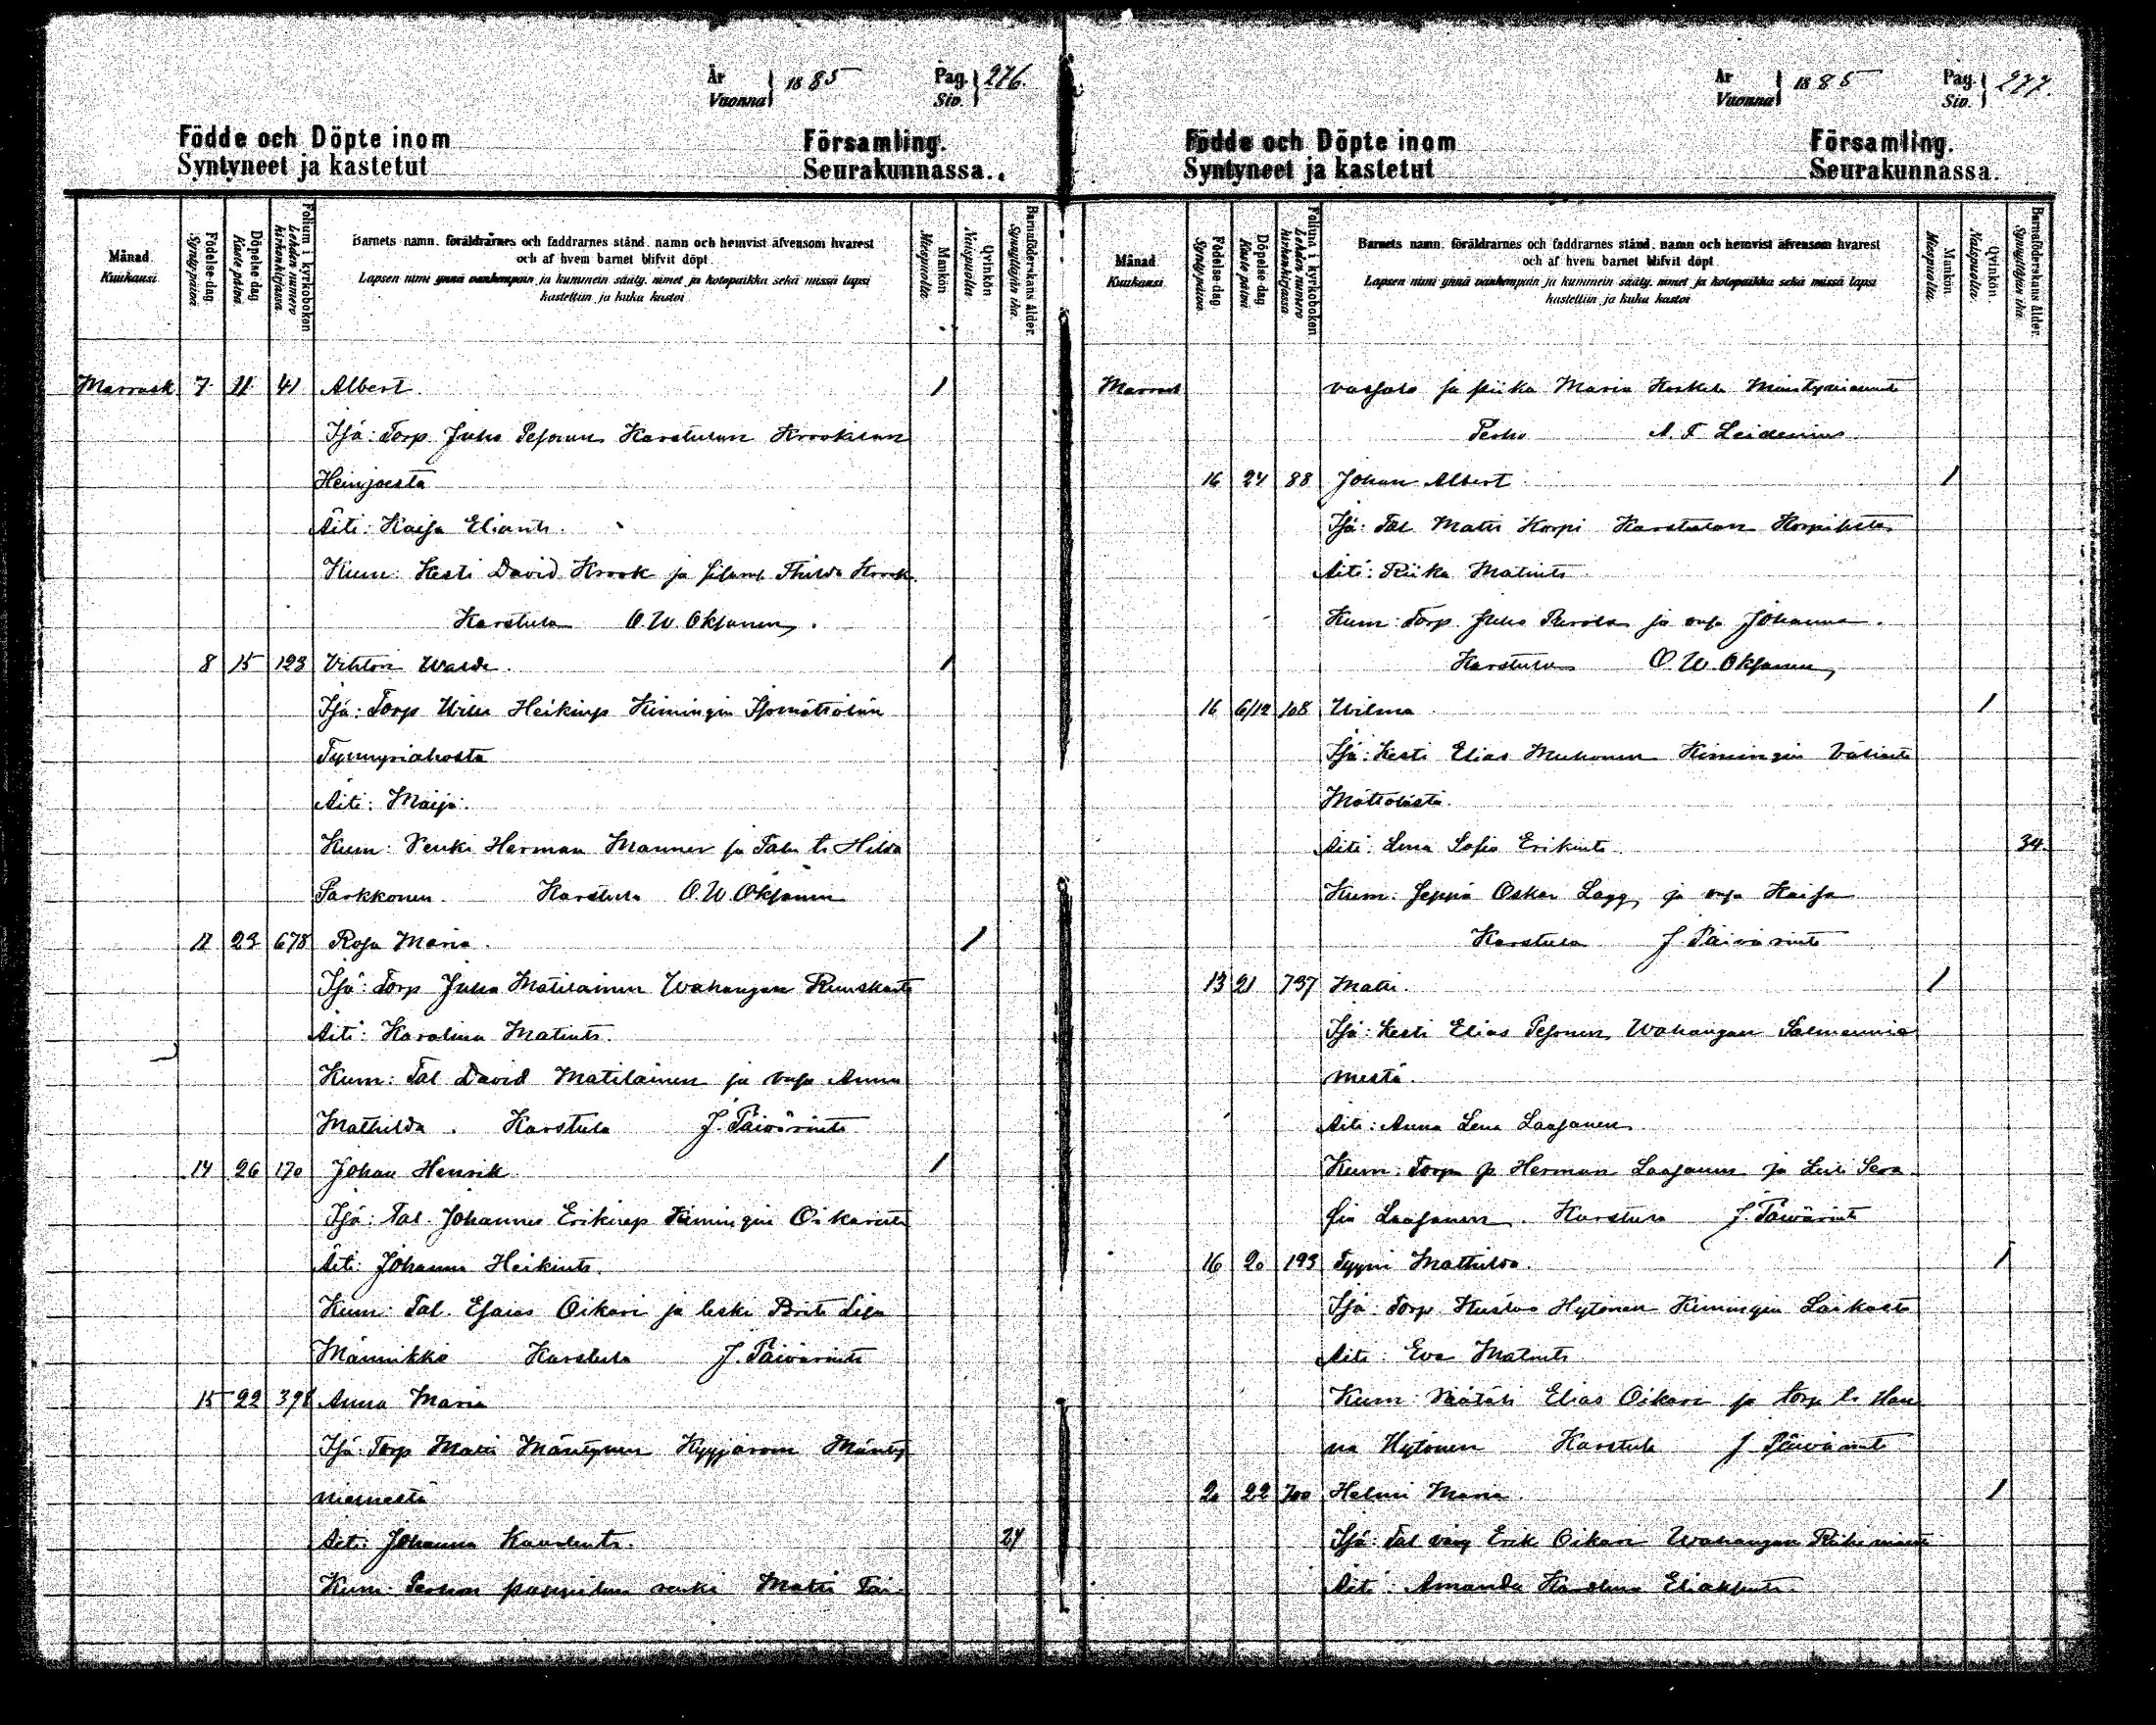 År 1885 Pag. 276.
Vuonna Siv.
Födde och Döpte inom Församling.
Syntyneet ja kastetut Seurakunnassa.
Månad Kuukausi
Födelse-dag Syntypäivä
Döpelse-dag Kaste päivä
Folium i kyrkoboken Lehden numero kirkonkirjassa
Barnets namn, föräldrarnes och faddrarnes stånd, namn och hemvist äfvensom hvarest
och af hvem barnet blifvit döpt
Lapsen nimi ynnä vanhempain ja kummein sääty, nimet ja kotopaikka sekä missä lapsi
kastettiin ja kuka kastoi
Mankön Miespuolia
Qvinkön Naispuolia
Barnaföderskans ålder. Synnyttäjän ikä.
Marrask 7 11 41 Albert 1
Isä: Torp. Juho Pesonen Karstulan Krookilan
Heinjoesta
Äiti: Kaisa Eliant.
Kum: Kesti David Krook ja Thilda Krook
Karstula O. W. Oksanen
8 15 123 Vihtori Waldi. 1
Isä: Torp Wille Heikinp Kimingin Isomättölän
Tynnyriahosta
Äiti: Maija.
Kum: Renki Herman Manner ja Tal. t. Hilda
Parkkonen. Karstula O. W. Oksanen
11 23 678 Rosa Maria. 1
Isä: Torp Juho Matilainen Wahangan
Äiti: Karolina Matint.
Kum: Tal David Matilainen ja vaja Anna
Mathilda. Karstula J. Päivärinta
14 26 170 Johan Henrik 1
Isä: Tal. Johannes Erikinp Kimingin Oikarista
Äiti: Johanna Heikint.
Kum: Tal. Esaias Oikari ja leski Brita Lisa
Männikkö Karstula J. Päivärinta
15 22 398 Anna Maria
Isä: Torp Matti Mäntynen Kyyjärven Mänty
niemestä
Äiti: Johanna 24
Kum: Perhon pappilan renki Matti Tai-
År 1885 Pag. 277.
Vuonna Siv.
Födde och Döpte inom Församling.
Syntyneet ja kastetut Seurakunnassa.
Månad Kuukausi
Födelse-dag Syntypäivä
Döpelse-dag Kaste päivä
Folium i kyrkoboken Lehden numero kirkonkirjassa
Barnets namn, föräldrarnes och faddrarnes stånd, namn och hemvist äfvensom hvarest
och af hvem barnet blifvit döpt
Lapsen nimi ynnä vanhempain ja kummein sääty, nimet ja kotopaikka sekä missä lapsi
kastettiin ja kuka kastoi
Mankön Miespuolia
Qvinkön Naispuolia
Barnaföderskans ålder. Synnyttäjän ikä.
Marrask ja piika Maria
Perho A. F. Leidenius
16 24 88 Johan Albert 1
Isä: Tal Matti Korpi Karstulan
Äiti: Riika Matint.
Kum: Torp. Juho Purola ja vaja Johanna.
Karstula O. W. Oksanen
16 6/12 108 Wilma 1
Isä: Kesti Elias Muhonen Kimingin
Mättölästä.
Äiti: Lena Sofia Erikint. 34.
Kum: Seppä Oskar Lagg ja vaja Kaisa
Karstula J. Päivärinta
13 21 737 Matti. 1
Isä: Kesti Elias Pesonen Wahangan Salmennie
mestä.
Äiti: Anna Lena Laasanen
Kum: Torp p Herman Laasanen ja Sera-
fia Laasanen. Karstula J. Päivärinta
16 20 193 Tyyni Mathilda. 1
Isä: Torp Kustaa Hytönen Kimingin
Äiti: Eva Matint.
Kum: Räätäli Elias Oikari ja torp t. Han
na Hytönen Karstula J. Päivärinta
20 22 700 Helmi Maria. 1
Isä: Tal väv Erik Oikari Wahangan
Äiti: Amanda Karolina